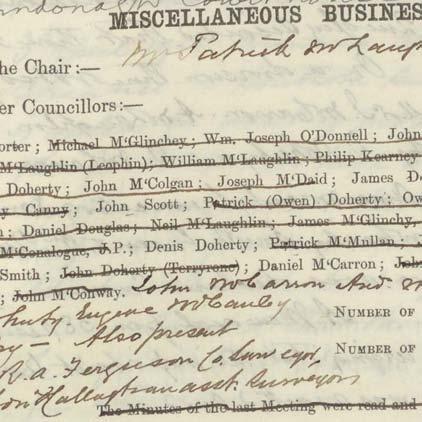 MISCELLANEOUS BUSINES
Mr Patrick McLaugh
he Chair:—
er Councillors:—
orter; Michael M'Glinchey; Wm. Joseph O'Donnell; John
M'Laughlin (Leophin); William M'Laughlin; Philip Kearney
Doherty; John M'Colgan; Joseph M'Daid; James Do
y Canny; John Scott; Patrick (Owen) Doherty; Ow
n; Daniel Douglas; Neil M'Laughlin; James M'Glinchy,
M'Conalogue, J.P.; Denis Doherty; Patrick M'Mullan;
Smith; John Doherty (Terryrone); Daniel M'Carron; Joh
; John M'Conway. John McCarron And
Eugene McCauley
NUMBER OF
Also present
R. A. Ferguson Co. Surveyor,
NUMBER OF
O'Hallaghan asst. Surveyors
The Minutes of the last Meeting were read and